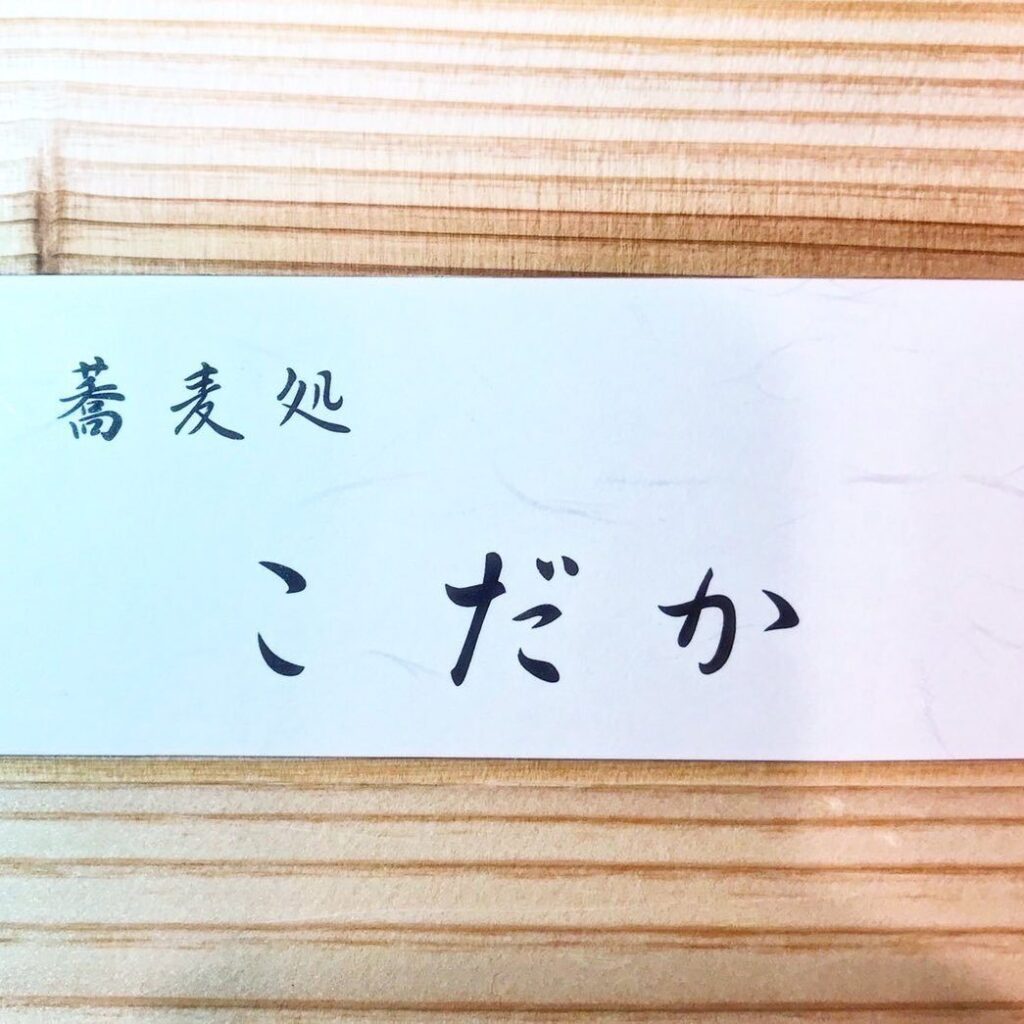 蕎麦処
こだか